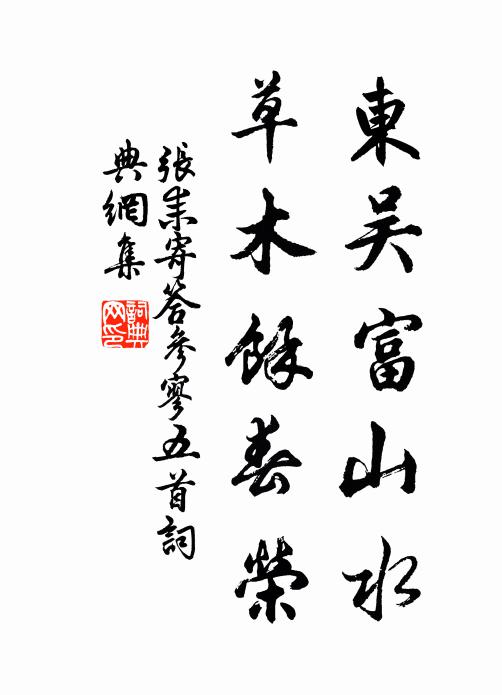 東吴富山水
草木餘春榮
張耒寄答參寥五首詞
典網集
詞典
网印